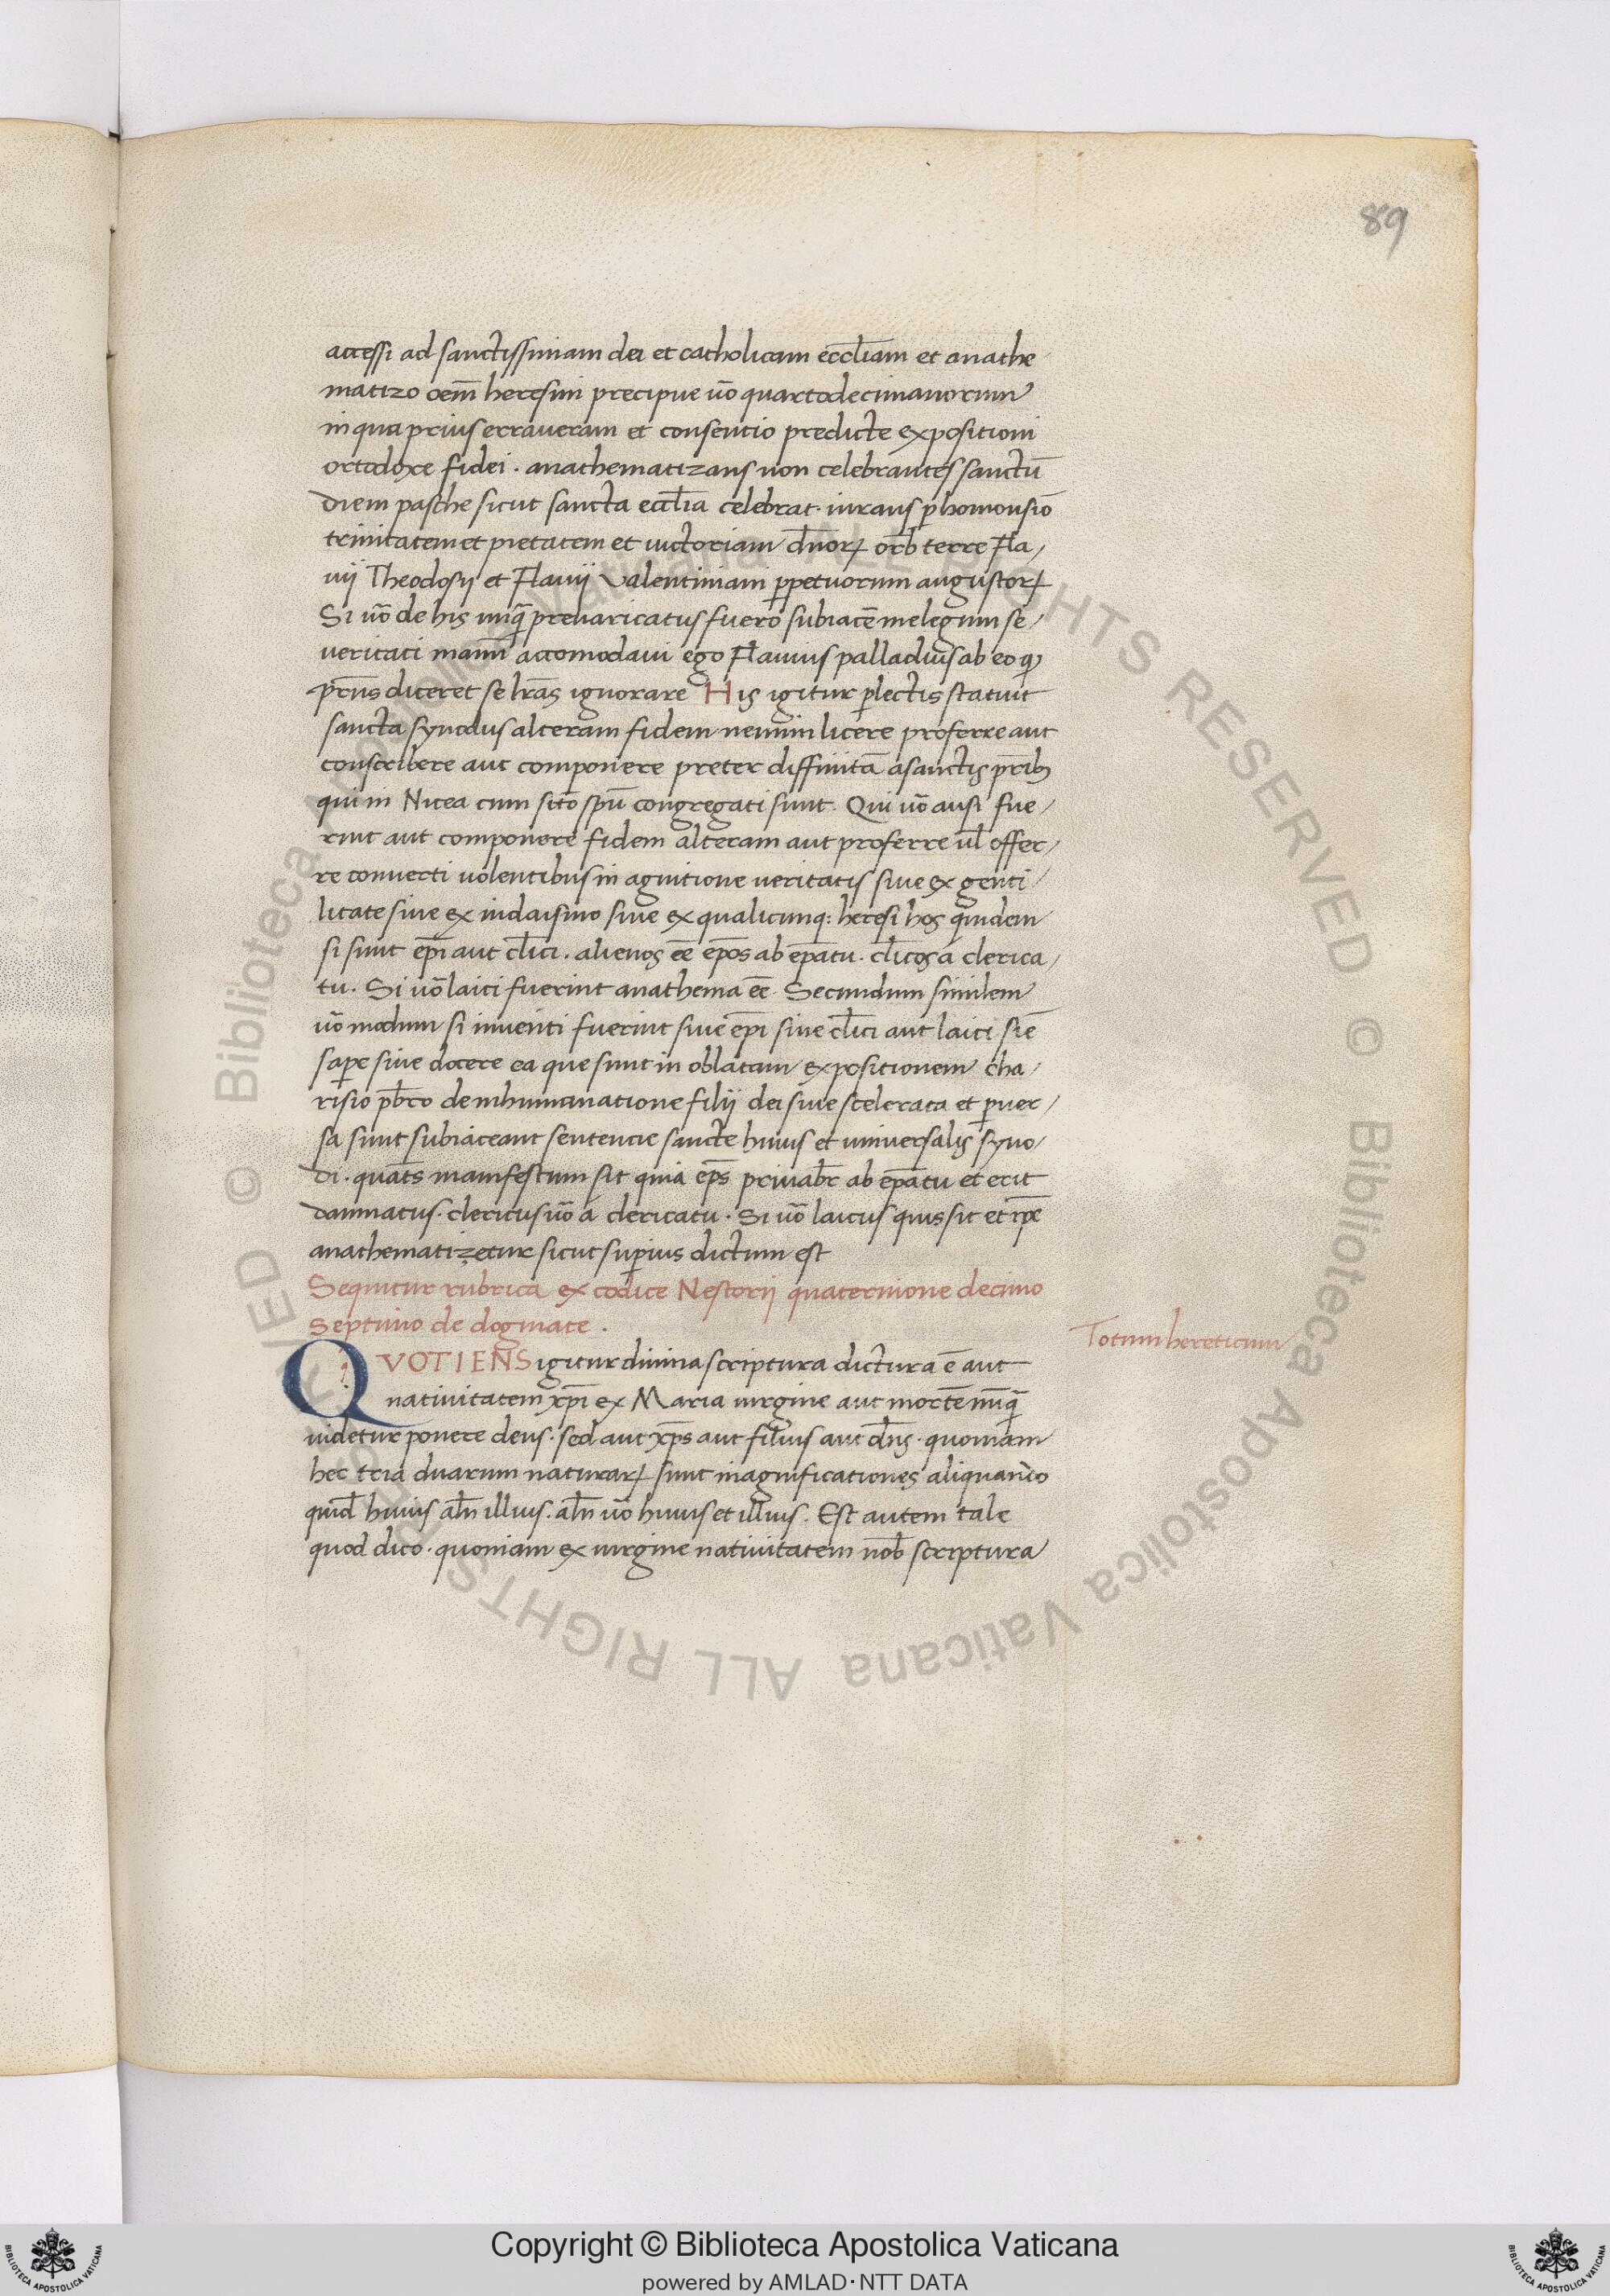 89
accessi ad sanctissimam dei et catholicam eccl̄iam et anathe/
matizo oēm heresim precipue uō quartodecimanorum
in qua prius erraueram et consentio predicte expositioni
ortodoxe fidei . anathematizans non celebrantes sanctū
diem pasche sicut sancta eccl̄ia celebrat · iurans ꝑ homousiō
trinitatem et pietatem et uictoriam dn̄oꝝ orb̄ terre Fla/
uij Theodosij et Flauij Valentiniani ꝑpetuorum augustoꝝ
Si uō de his unq̄ preuaricatus fuero subiacē me legum se/
veritati manū accomodaui ego Flauius palladius ab eo ꝙ
pr̄ns diceret se lr̄as ignorare His igitur ꝑlectis statuit
sancta synodus alteram fidem nemini licere proferre aut
conscribere aut componere preter diffinitā a sanctis pr̄ibꝫ
qui in Nicea cum sc̄to spū congregati sunt . Qui uō ausi fue/
rint aut componere fidem alteram aut proferre ul̄ offer/
re conuerti uolentibus in agnitione ueritatis siue ex genti/
litate siue ex iudaismo siue ex qualicunq: heresi hos quidem
si sunt ep̄i aut cl̄ici . alienos eē ep̄os ab ep̄atu . cl̄icos a clerica/
tu . Si uō laici fuerint anathema eē . Secundum similem
uō modum si inuenti fuerint siue ep̄i siue cl̄ici aut laici siē
saꝑe siue docere ea que sunt in oblatam expositionem cha/
risio pb̄ro de inhumanatione filij dei siue scelerata et ꝑuer/
sa sunt subiaceant sentencie sancte huius et uniuersalis syno/
di . quat̄s manifestum sit quia ep̄s priuab̄r ab ep̄atu et erit
damnatus . clericus uō a clericatu . Si uō laicus quis sit et ip̄e
anathematizetur sicut suꝑius dictum est
Sequitur rubrica ex codice Nestorij quaternione decimo
septimo de dogmate .
Totum hereticum
QVOTIENS igitur diuina scriptura dictura ē aut
natiuitatem xp̄i ex Maria uirgine aut mortē nūq̄
uidetur ponere deus . sed aut xp̄s aut filius aut dn̄s . quoniam
hec tria duarum naturaꝝ sunt magnificationes aliquando
quid̄ huius al̄n illius . al̄n uō huius et illius . Est autem tale
quod dico . quoniam ex uirgine natiuitatem nob̄ scriptura
© Biblioteca Apostolica Vaticana ALL RIGHTS RESERVED © Biblioteca Apostolica Vaticana ALL RIGHTS RESERVED
Copyright © Biblioteca Apostolica Vaticana
powered by AMLAD·NTT DATA
BIBLIOTECA APOSTOLICA VATICANA
BIBLIOTECA APOSTOLICA VATICANA